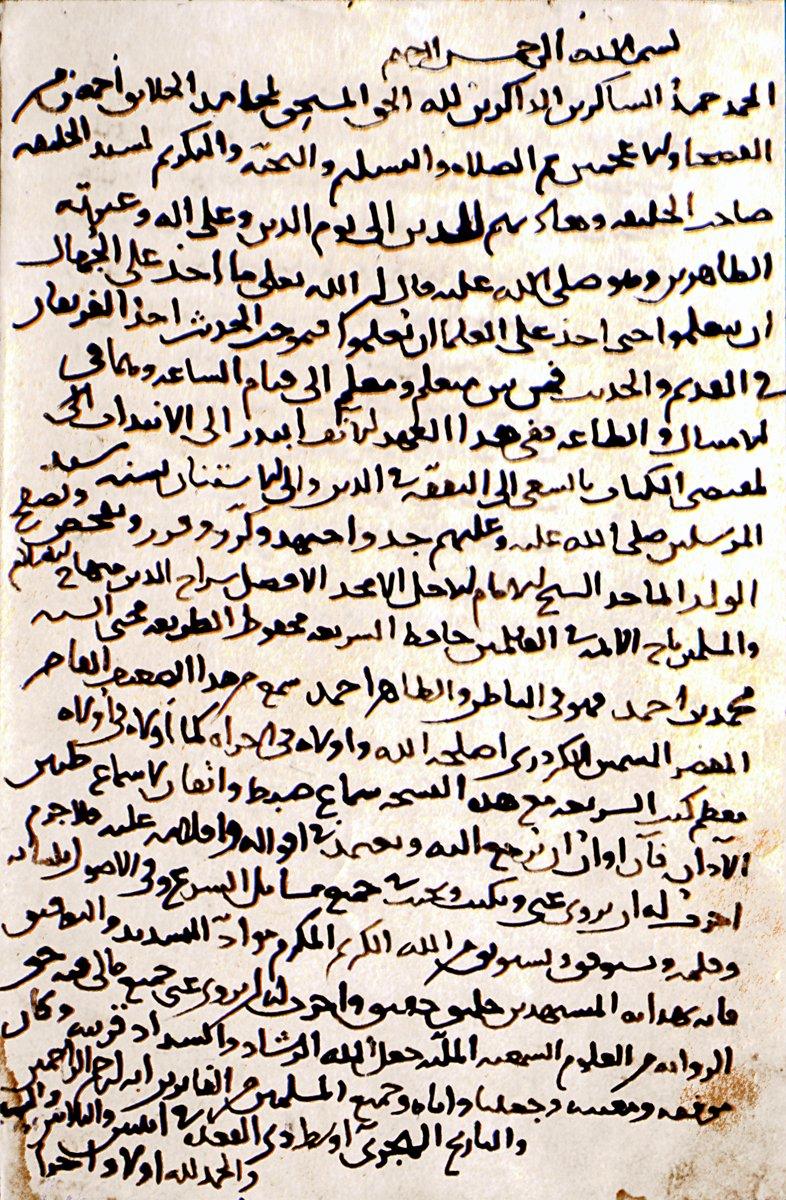 بسم الله الرحمن الرحيم
الحمد حمد الشاكرين الذاكرين لله الحق المستحق لمحامد الخلائق أجمع من
الفصحا ولما عجمين مع الصلاه والتسليم والتحيّة والتكريم لسيد الخليقه
صاحب الحنيفيه الى يوم الدين وعلى اله وعترته
الطاهرين وهو صلى الله عليه قال ان الله تعلى ما اخذ على الجهال
ان يتعلموا حتى اخذ على العلما ان يعلموا فبموجب الحديث اخذ الفريقان
في القديم والحديث فمن بين متعلم ومعلم الى قيام الساعه
الامتثال والطاعه ففي هذا العهد ابتدر الى الانتداب الى
لمقتضى الكتاب بالسعى الى التفقّه في الدين والى الاستنان بسنه سيد
المرسلين صلى الله عليه وعليهم جد واجتهد وكرّر وقرر وتفحص وتصفح
الولد الماجد الشيخ الامام الاجل الامجد الافضل سراج الدين منهاج الاسلام
والمسلمين تاج الائمه في العالمين حافظ الشريعه محفوظ الطريقه محيى السنه
محمد بن احمد فهو في الباطن والظاهر احمد سمع من هذا الضعيف القاصر
المقصر الشمس الكردرى اصلحه الله واولاه في اخراه كما أولاه في أولاه
معظم كتب الشريعه مع هذه النسخه سماع ضبط واتقان لا سماع طنين
الآذان فآن اوان ان يرجع اليه ويعتمد في اقواله عليه فلا جرم
اجزت له ان يروى عنى ويكتب ويجيب في جميع مسائل الشرع وفى الاصول بلسانه
وقلمه ويستوفق من الله الكريم المكرم موادّ التسديد والتوفيق
فانه بهدايه المستهدين خليق حقيق واجزت له ان يروى عنى جميع مالى فيه حق
الروايه من العلوم السمعيه الملّيه جعل الله الرشاد والسداد قرينه وكان
موفقه ومعينه وجعلنا واياه وجميع المسلمين من الفايزين انه ارحم الراحمين
والتاريخ الهجرىّ اوسط ذى القعده في اثنين والثلاثين
والحمد لله اولا واخرا